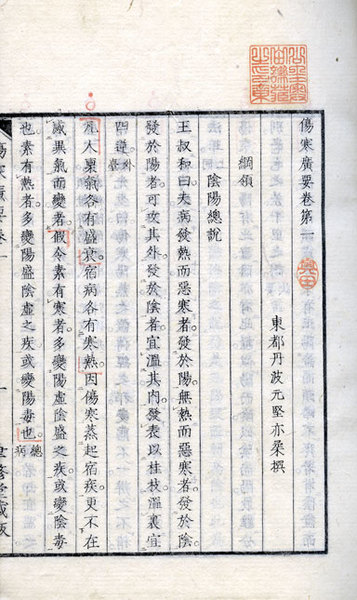 傷寒廣要卷第一
東都丹波元堅亦柔撰
綱領
陰陽總說
王叔和曰夫病發熱而惡寒者發於陽無熱而惡寒者發於陰
發於陽者可攻其外發於陰者宜溫其內發表以桂枝溫裏宜
四逆外臺
凡人稟氣各有盛衰。宿病各有寒熱。因傷寒蒸起宿疾。更不在
感異氣而變者。假令素有寒者。多變陽虛陰盛之疾。或變陰毒
也。素有熱者。多變陽盛陰虛之疾。或變陽毒也。總病
傷寒廣要卷一
一